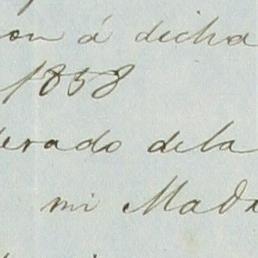 on á dicha
1858
erado dela
mi Mad